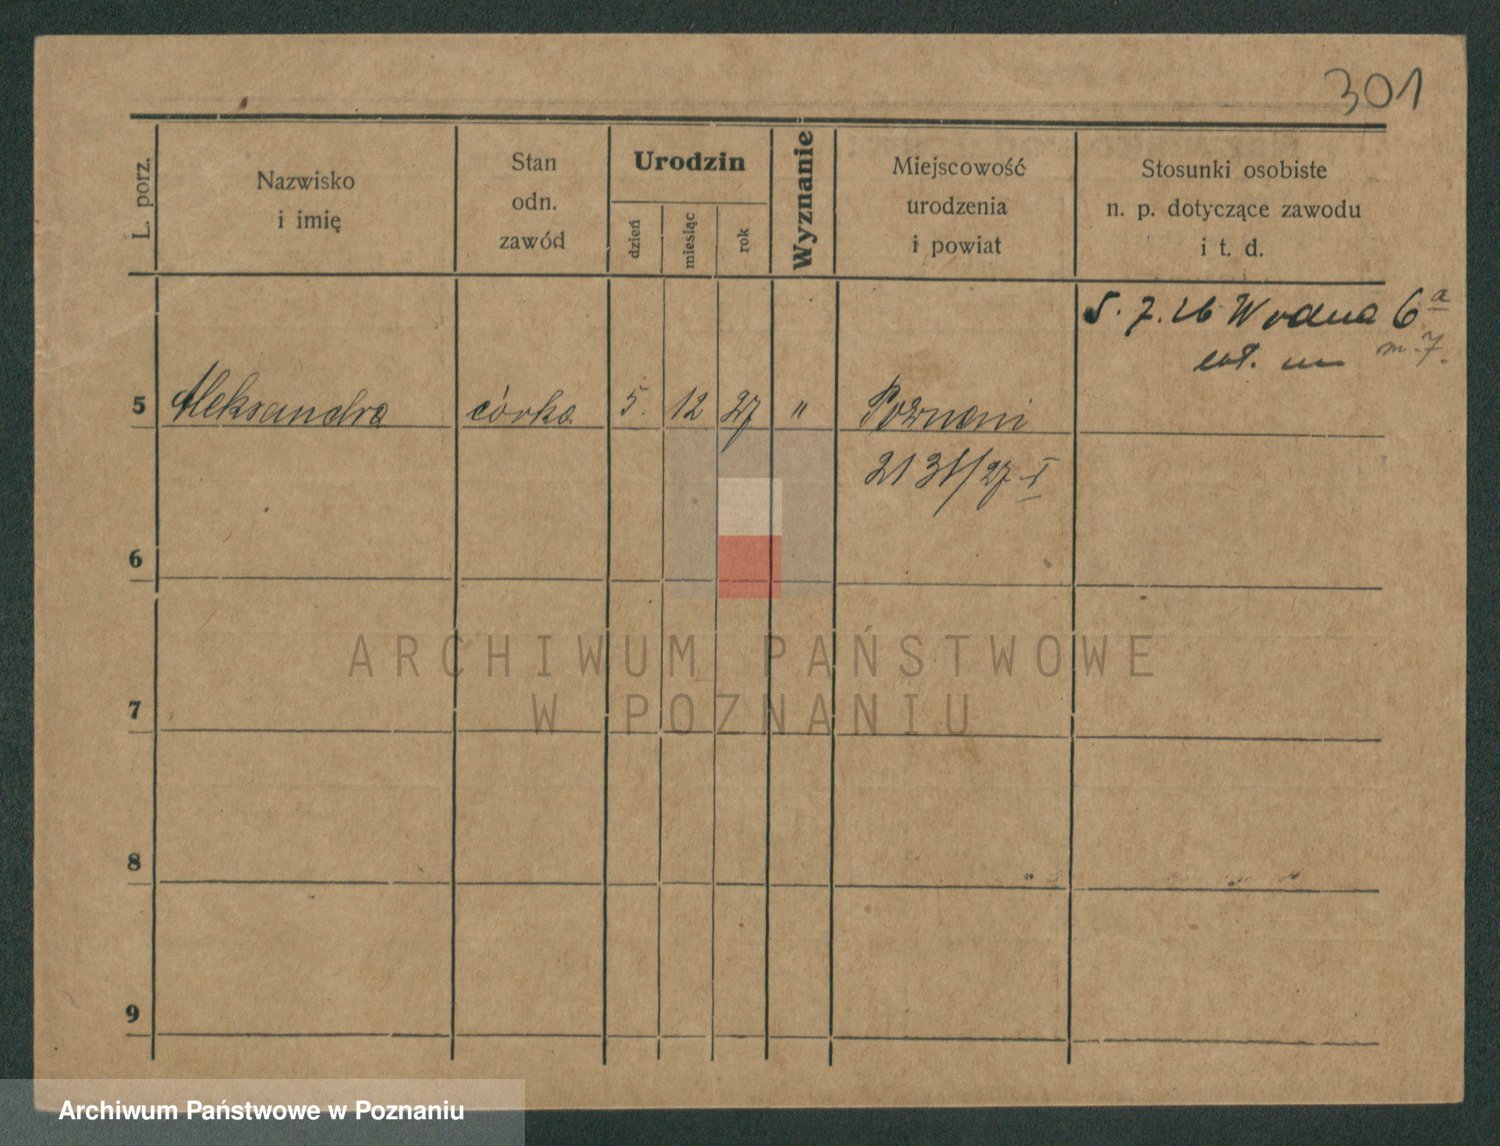 301
L. porz.
Nazwisko
i imię
Stan
odn.
zawód
Urodzin
dzień
miesiąc
rok
Wyznanie
Miejscowość
urodzenia
i powiat
Stosunki osobiste
n. p. dotyczące zawodu
i t. d.
5. 7. 26 Wodna 6a
m. 7.
5 Aleksandra córka 5. 12 27 " Poznań
2131/27 I
6
7
8
9
ARCHIWUM PAŃSTWOWE
W POZNANIU
Archiwum Państwowe w Poznaniu